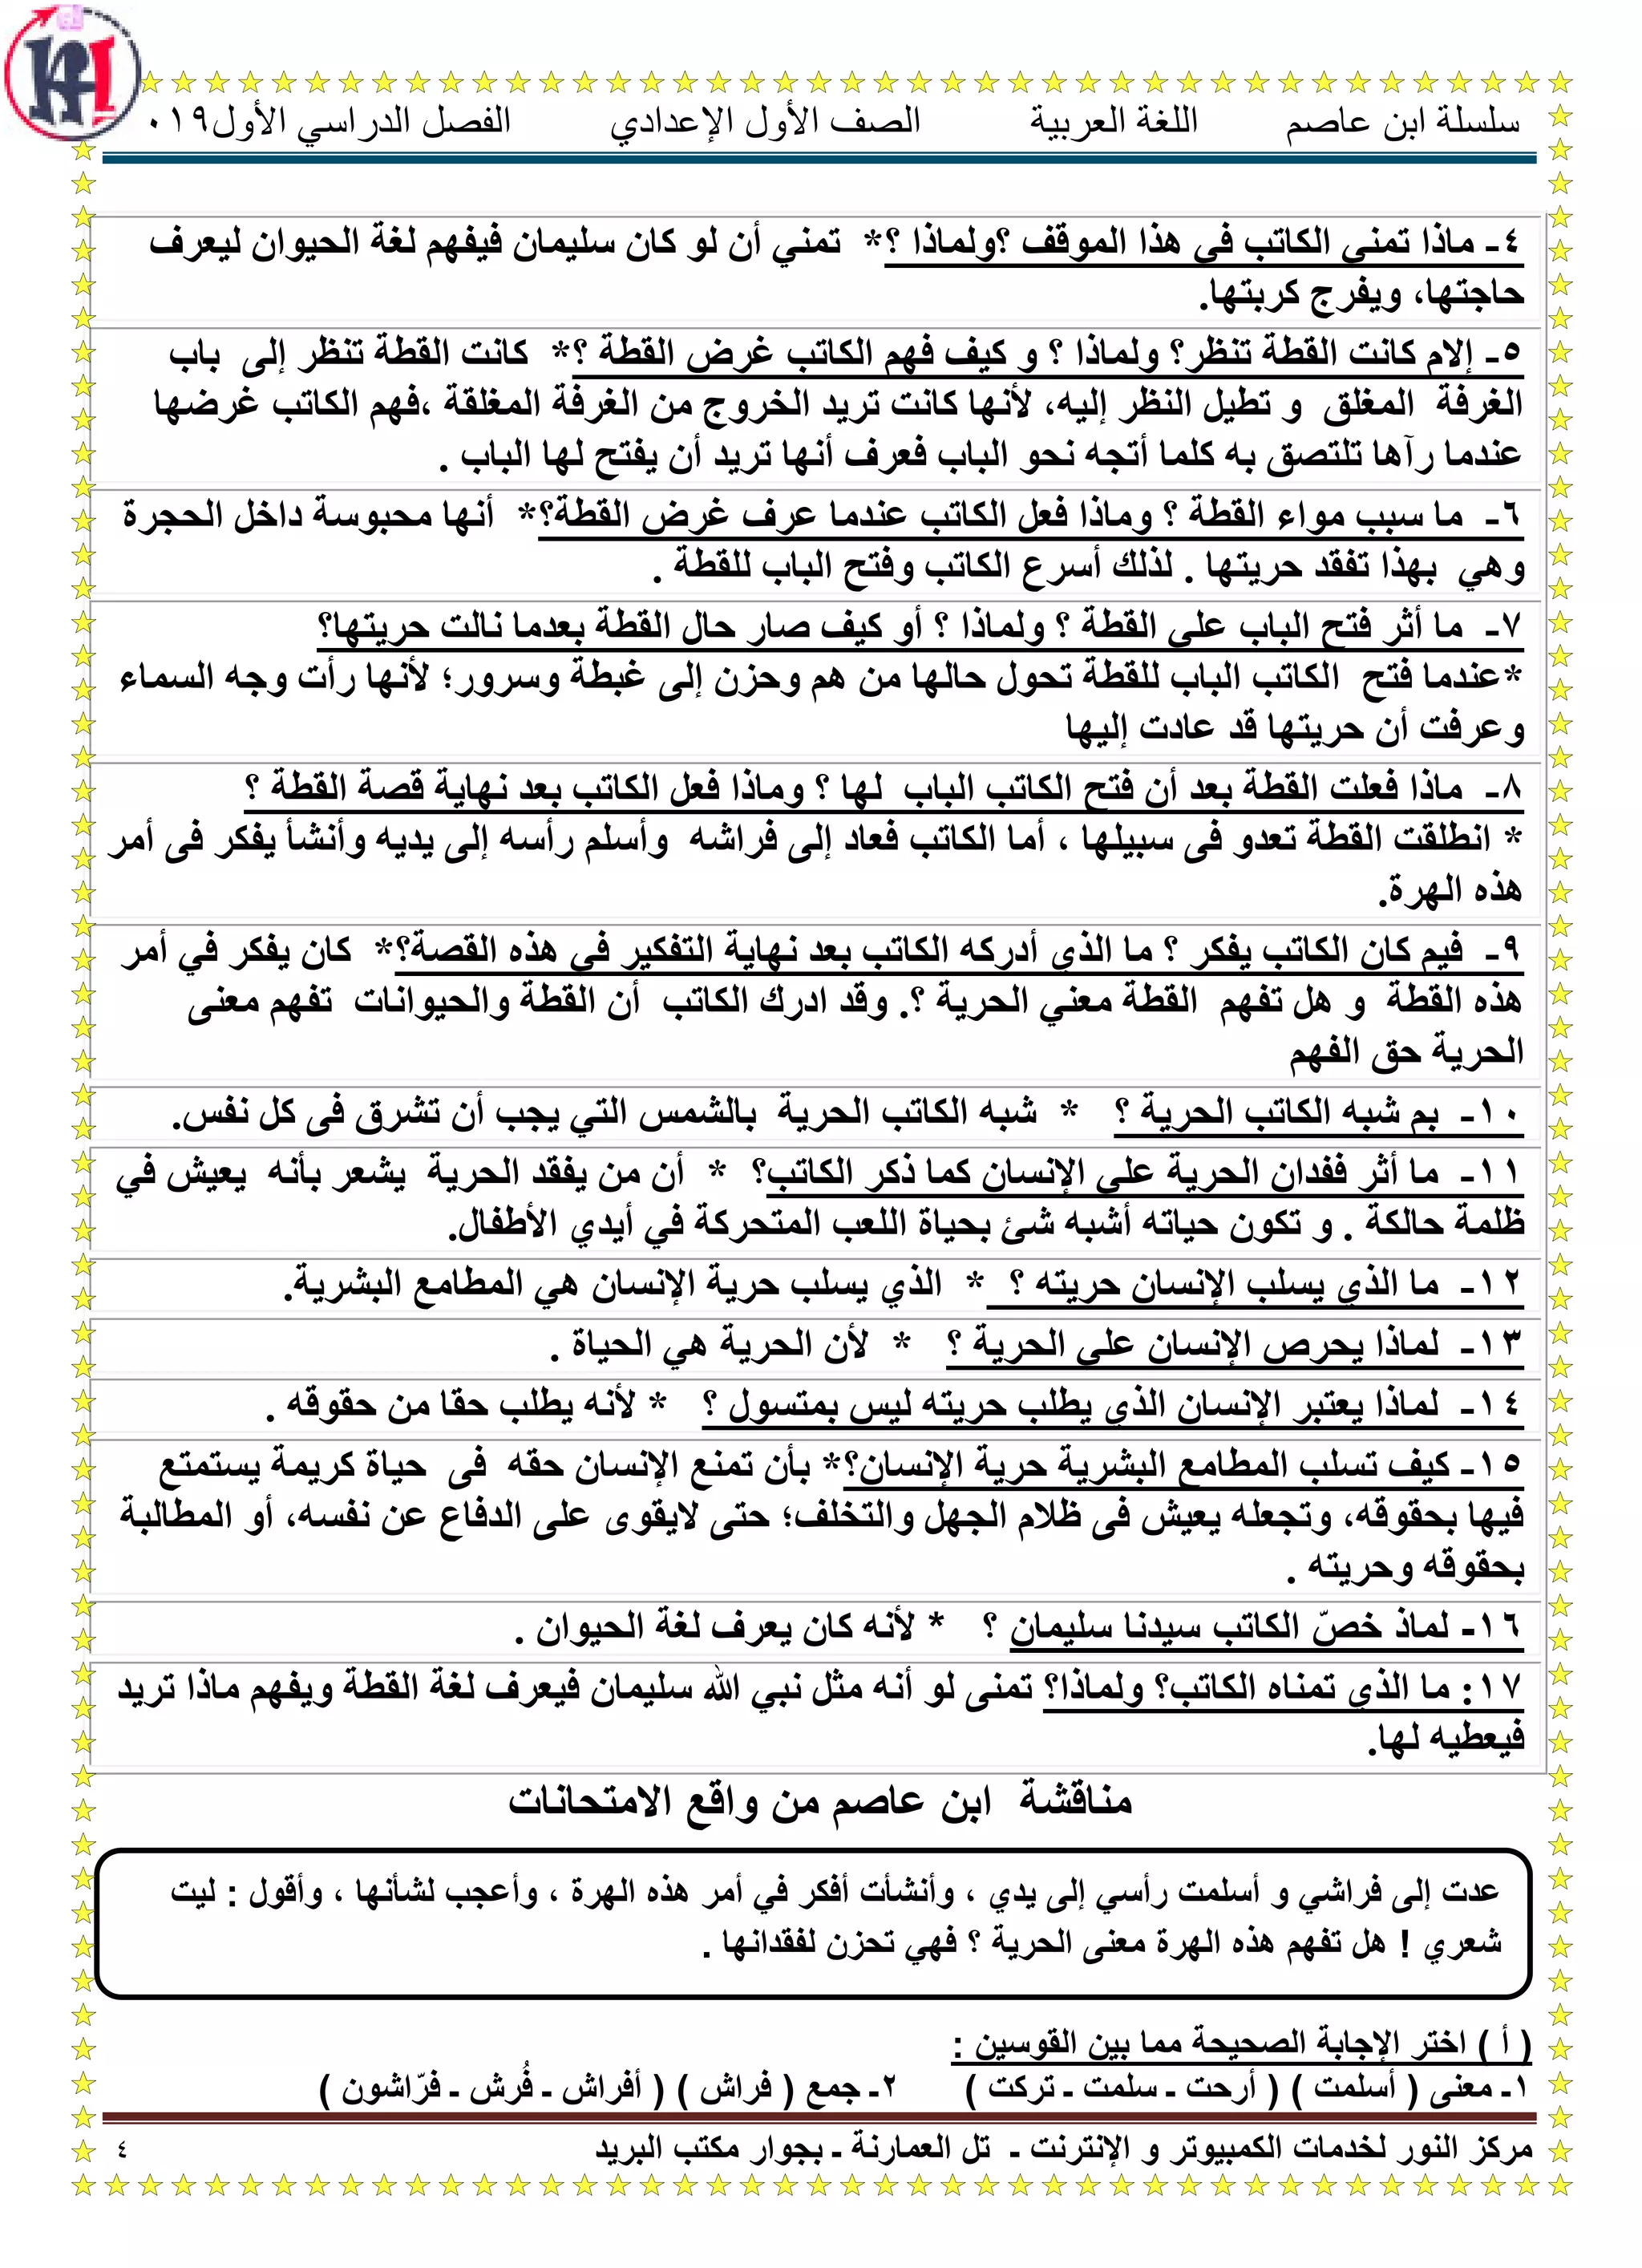 سلسلة ابن عاصم اللغة العربية الصف الأول الإعدادي الفصل الدراسي الأول٠١٩
٤- ماذا تمني الكاتب في هذا الموقف ؟ولماذا ؟* تمني أن لو كان سليمان فيفهم لغة الحيوان ليعرف
حاجتها، ويفرج كربتها.
٥- إلام كانت القطة تنظر؟ ولماذا ؟ و كيف فهم الكاتب غرض القطة ؟* كانت القطة تنظر إلى باب
الغرفة المغلق و تطيل النظر إليه، لأنها كانت تريد الخروج من الغرفة المغلقة ،فهم الكاتب غرضها
عندما رآها تلتصق به كلما أتجه نحو الباب فعرف أنها تريد أن يفتح لها الباب .
٦- ما سبب مواء القطة ؟ وماذا فعل الكاتب عندما عرف غرض القطة؟* أنها محبوسة داخل الحجرة
وهي بهذا تفقد حريتها . لذلك أسرع الكاتب وفتح الباب للقطة .
٧- ما أثر فتح الباب علي القطة ؟ ولماذا ؟ أو كيف صار حال القطة بعدما نالت حريتها؟
*عندما فتح الكاتب الباب للقطة تحول حالها من هم وحزن إلى غبطة وسرور؛ لأنها رأت وجه السماء
وعرفت أن حريتها قد عادت إليها
٨- ماذا فعلت القطة بعد أن فتح الكاتب الباب لها ؟ وماذا فعل الكاتب بعد نهاية قصة القطة ؟
* انطلقت القطة تعدو فى سبيلها ، أما الكاتب فعاد إلى فراشه وأسلم رأسه إلى يديه وأنشأ يفكر فى أمر
هذه الهرة.
٩- فيم كان الكاتب يفكر ؟ ما الذي أدركه الكاتب بعد نهاية التفكير في هذه القصة؟* كان يفكر في أمر
هذه القطة و هل تفهم القطة معني الحرية ؟. وقد ادرك الكاتب أن القطة والحيوانات تفهم معنى
الحرية حق الفهم
١٠- بم شبه الكاتب الحرية ؟ * شبه الكاتب الحرية بالشمس التي يجب أن تشرق فى كل نفس.
١١- ما أثر فقدان الحرية علي الإنسان كما ذكر الكاتب؟ * أن من يفقد الحرية يشعر بأنه يعيش في
ظلمة حالكة . و تكون حياته أشبه شئ بحياة اللعب المتحركة في أيدي الأطفال.
١٢- ما الذي يسلب الإنسان حريته ؟ * الذي يسلب حرية الإنسان هي المطامع البشرية.
١٣- لماذا يحرص الإنسان علي الحرية ؟ * لأن الحرية هي الحياة .
١٤- لماذا يعتبر الإنسان الذي يطلب حريته ليس بمتسول ؟ * لأنه يطلب حقا من حقوقه .
١٥- كيف تسلب المطامع البشرية حرية الإنسان؟* بأن تمنع الإنسان حقه فى حياة كريمة يستمتع
فيها بحقوقه، وتجعله يعيش فى ظلام الجهل والتخلف؛ حتى لايقوى على الدفاع عن نفسه، أو المطالبة
بحقوقه وحريته .
١٦- لماذ خصّ الكاتب سيدنا سليمان ؟ * لأنه كان يعرف لغة الحيوان .
١٧: ما الذي تمناه الكاتب؟ ولماذا؟ تمنى لو أنه مثل نبي الله سليمان فيعرف لغة القطة ويفهم ماذا تريد
فيعطيه لها.
مناقشة ابن عاصم من واقع الامتحانات
عدت إلى فراشي و أسلمت رأسي إلى يدي ، وأنشأت أفكر في أمر هذه الهرة ، وأعجب لشأنها ، وأقول : ليت
شعري ! هل تفهم هذه الهرة معنى الحرية ؟ فهي تحزن لفقدانها .
( أ ) اختر الإجابة الصحيحة مما بين القوسين :
١ـ معنى ( أسلمت ) ( أرحت ـ سلمت ـ تركت ) ٢ـ جمع ( فراش ) ( أفراش ـ فُرش ـ فرّاشون )
مركز النور لخدمات الكمبيوتر و الإنترنت ـ تل العمارنة ـ بجوار مكتب البريد ٤